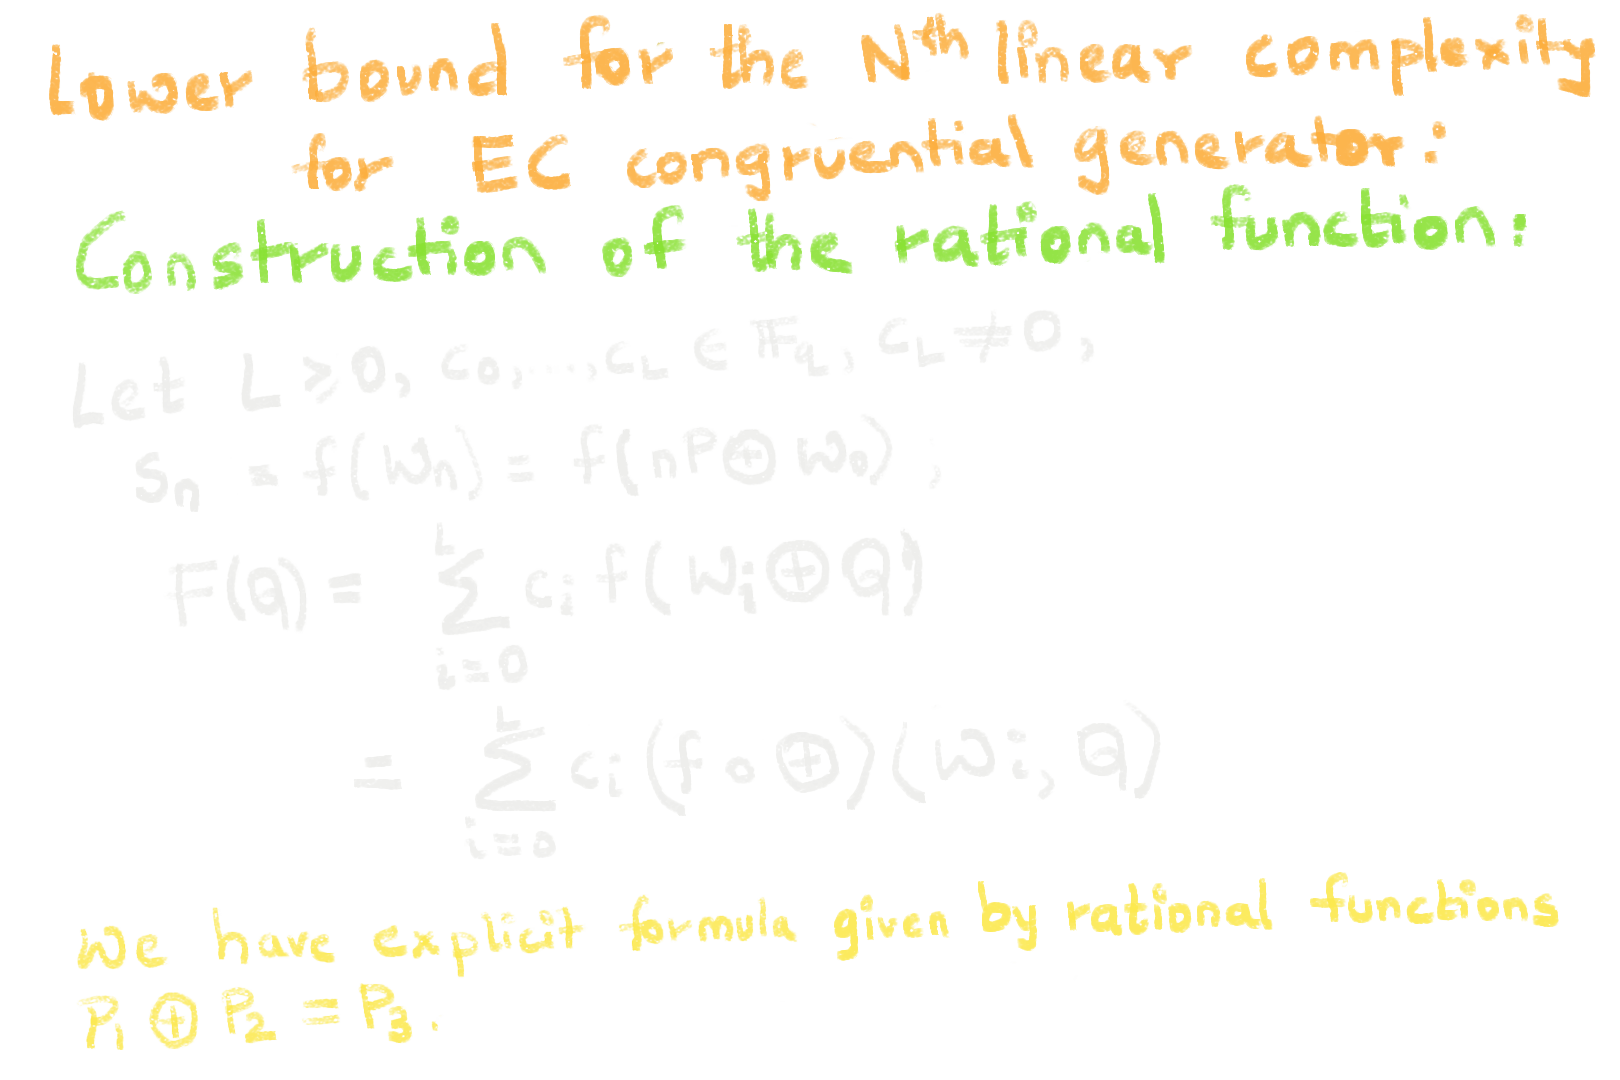 Lower bound for the Nth linear complexity
for EC congruential generator:
Construction of the rational function:
Let L ≥ 0, c₀,...,c_L ∈ 𝔽_q, c_L ≠ 0,
S_n = f(W_n) = f(nP ⊕ W₀),
F(Q) = ∑_{i=0}^{L} c_i f(W_i ⊕ Q)
= ∑_{i=0}^{L} c_i (f ∘ ⊕)(W_i, Q)
We have explicit formula given by rational functions
P₁ ⊕ P₂ = P₃.